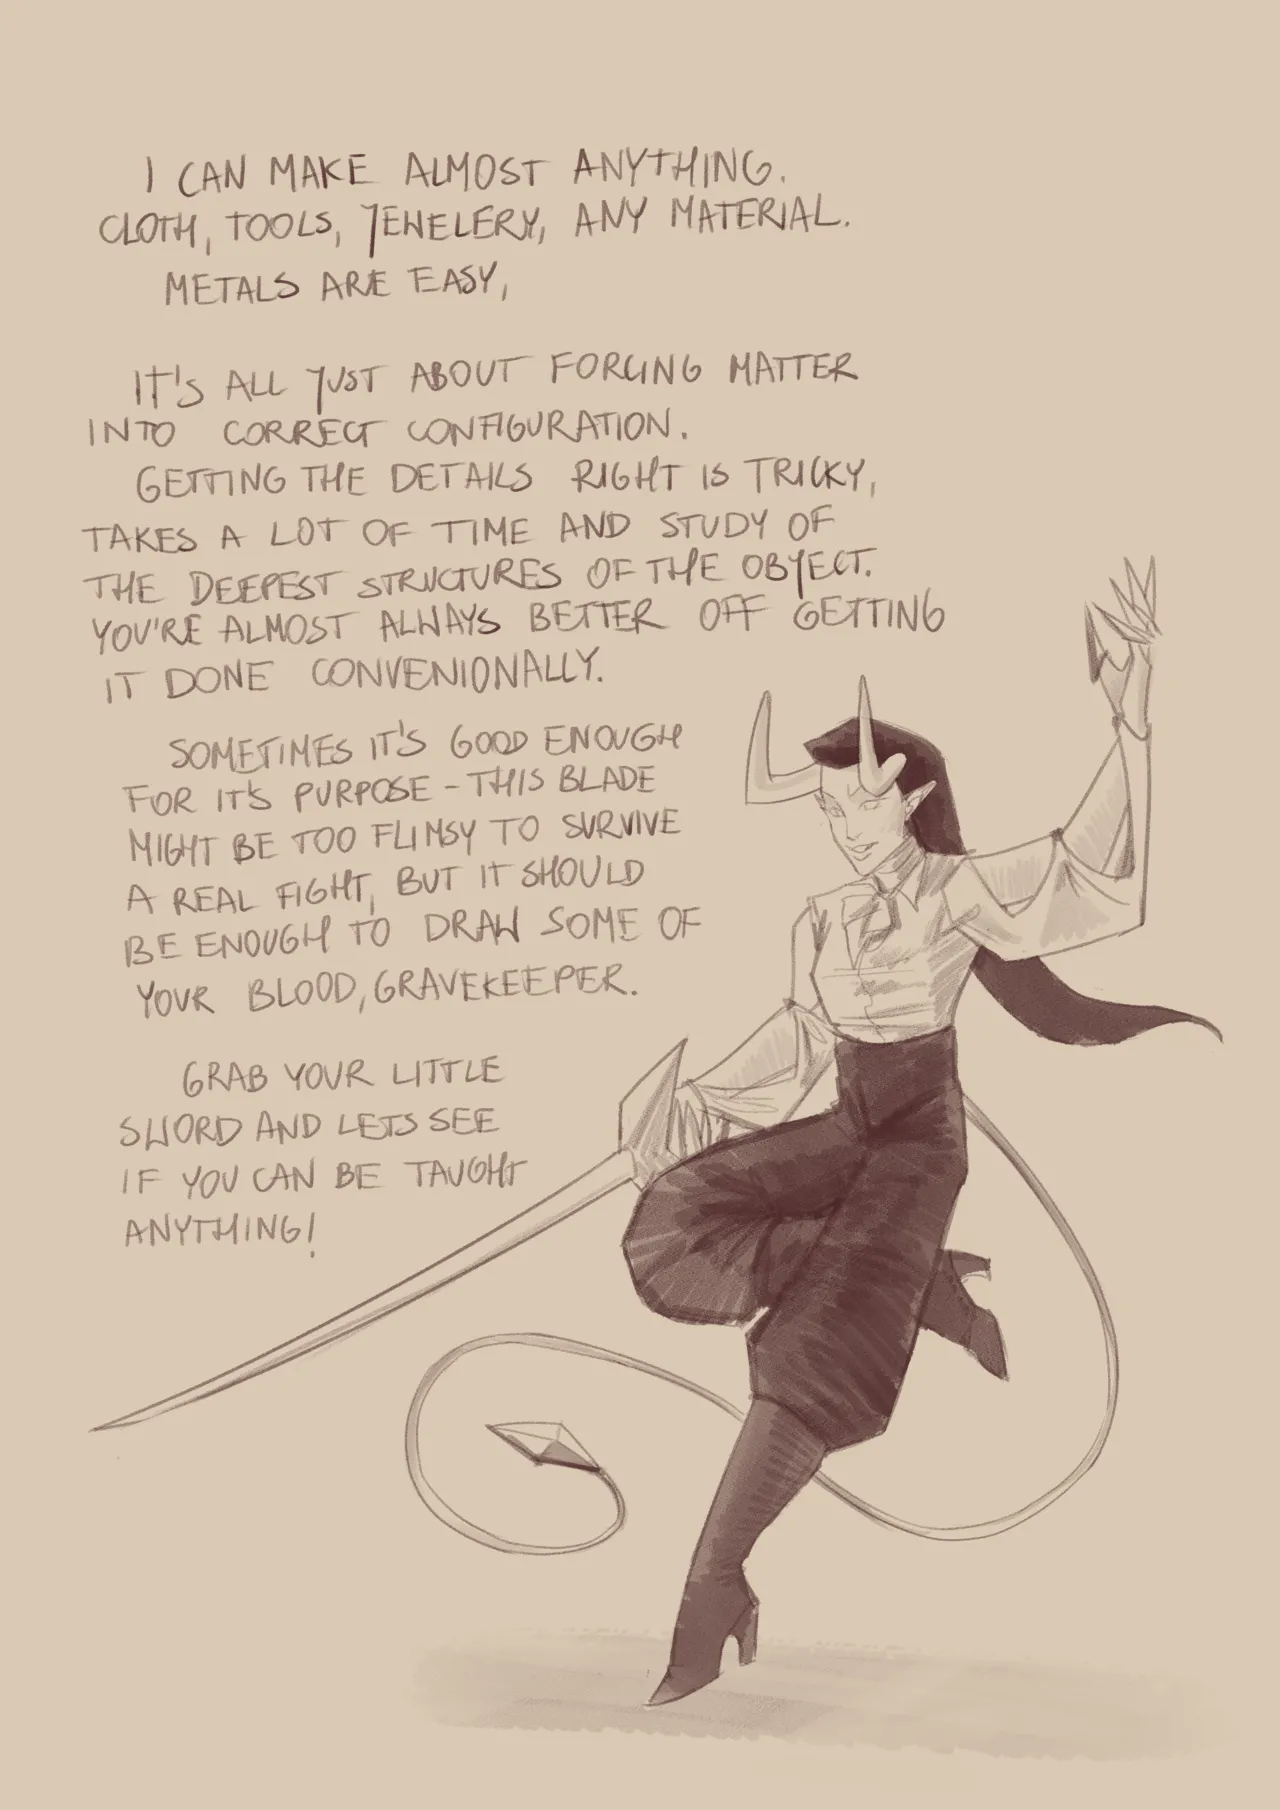 I CAN MAKE ALMOST ANYTHING.
CLOTH, TOOLS, JEWELERY, ANY MATERIAL.
METALS ARE EASY,
IT'S ALL JUST ABOUT FORCING MATTER
INTO CORRECT CONFIGURATION.
GETTING THE DETAILS RIGHT IS TRICKY,
TAKES A LOT OF TIME AND STUDY OF
THE DEEPEST STRUCTURES OF THE OBJECT.
YOU'RE ALMOST ALWAYS BETTER OFF GETTING
IT DONE CONVENIONALLY.
SOMETIMES IT'S GOOD ENOUGH
FOR IT'S PURPOSE - THIS BLADE
MIGHT BE TOO FLIMSY TO SURVIVE
A REAL FIGHT, BUT IT SHOULD
BE ENOUGH TO DRAW SOME OF
YOUR BLOOD, GRAVEKEEPER.
GRAB YOUR LITTLE
SWORD AND LETS SEE
IF YOU CAN BE TAUGHT
ANYTHING!